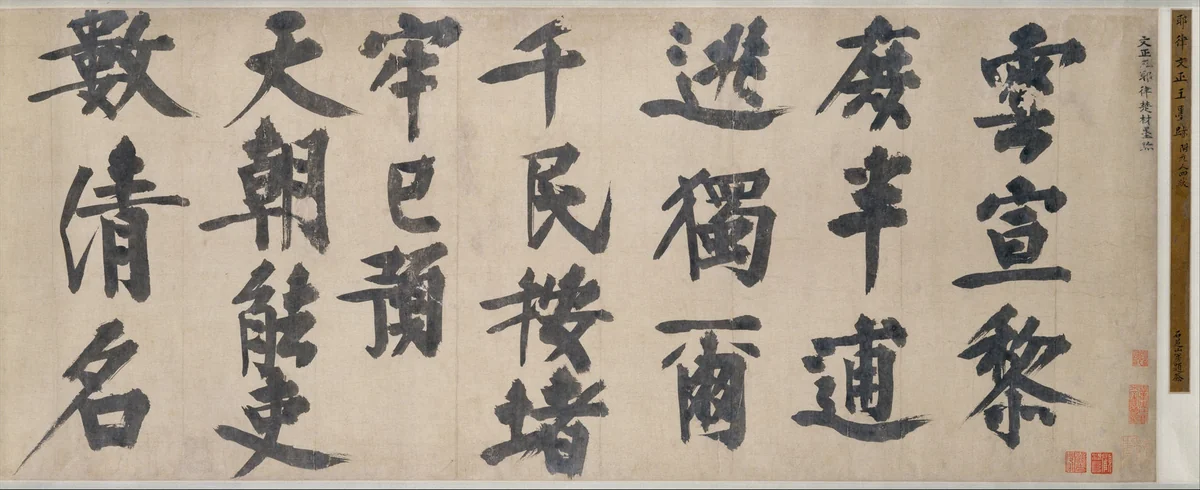 耶律文正王墨跡
耶律楚材墨跡
雲宣黎
庶半逋
逃獨爾
千民按堵
牢已預
天朝能吏
數清名